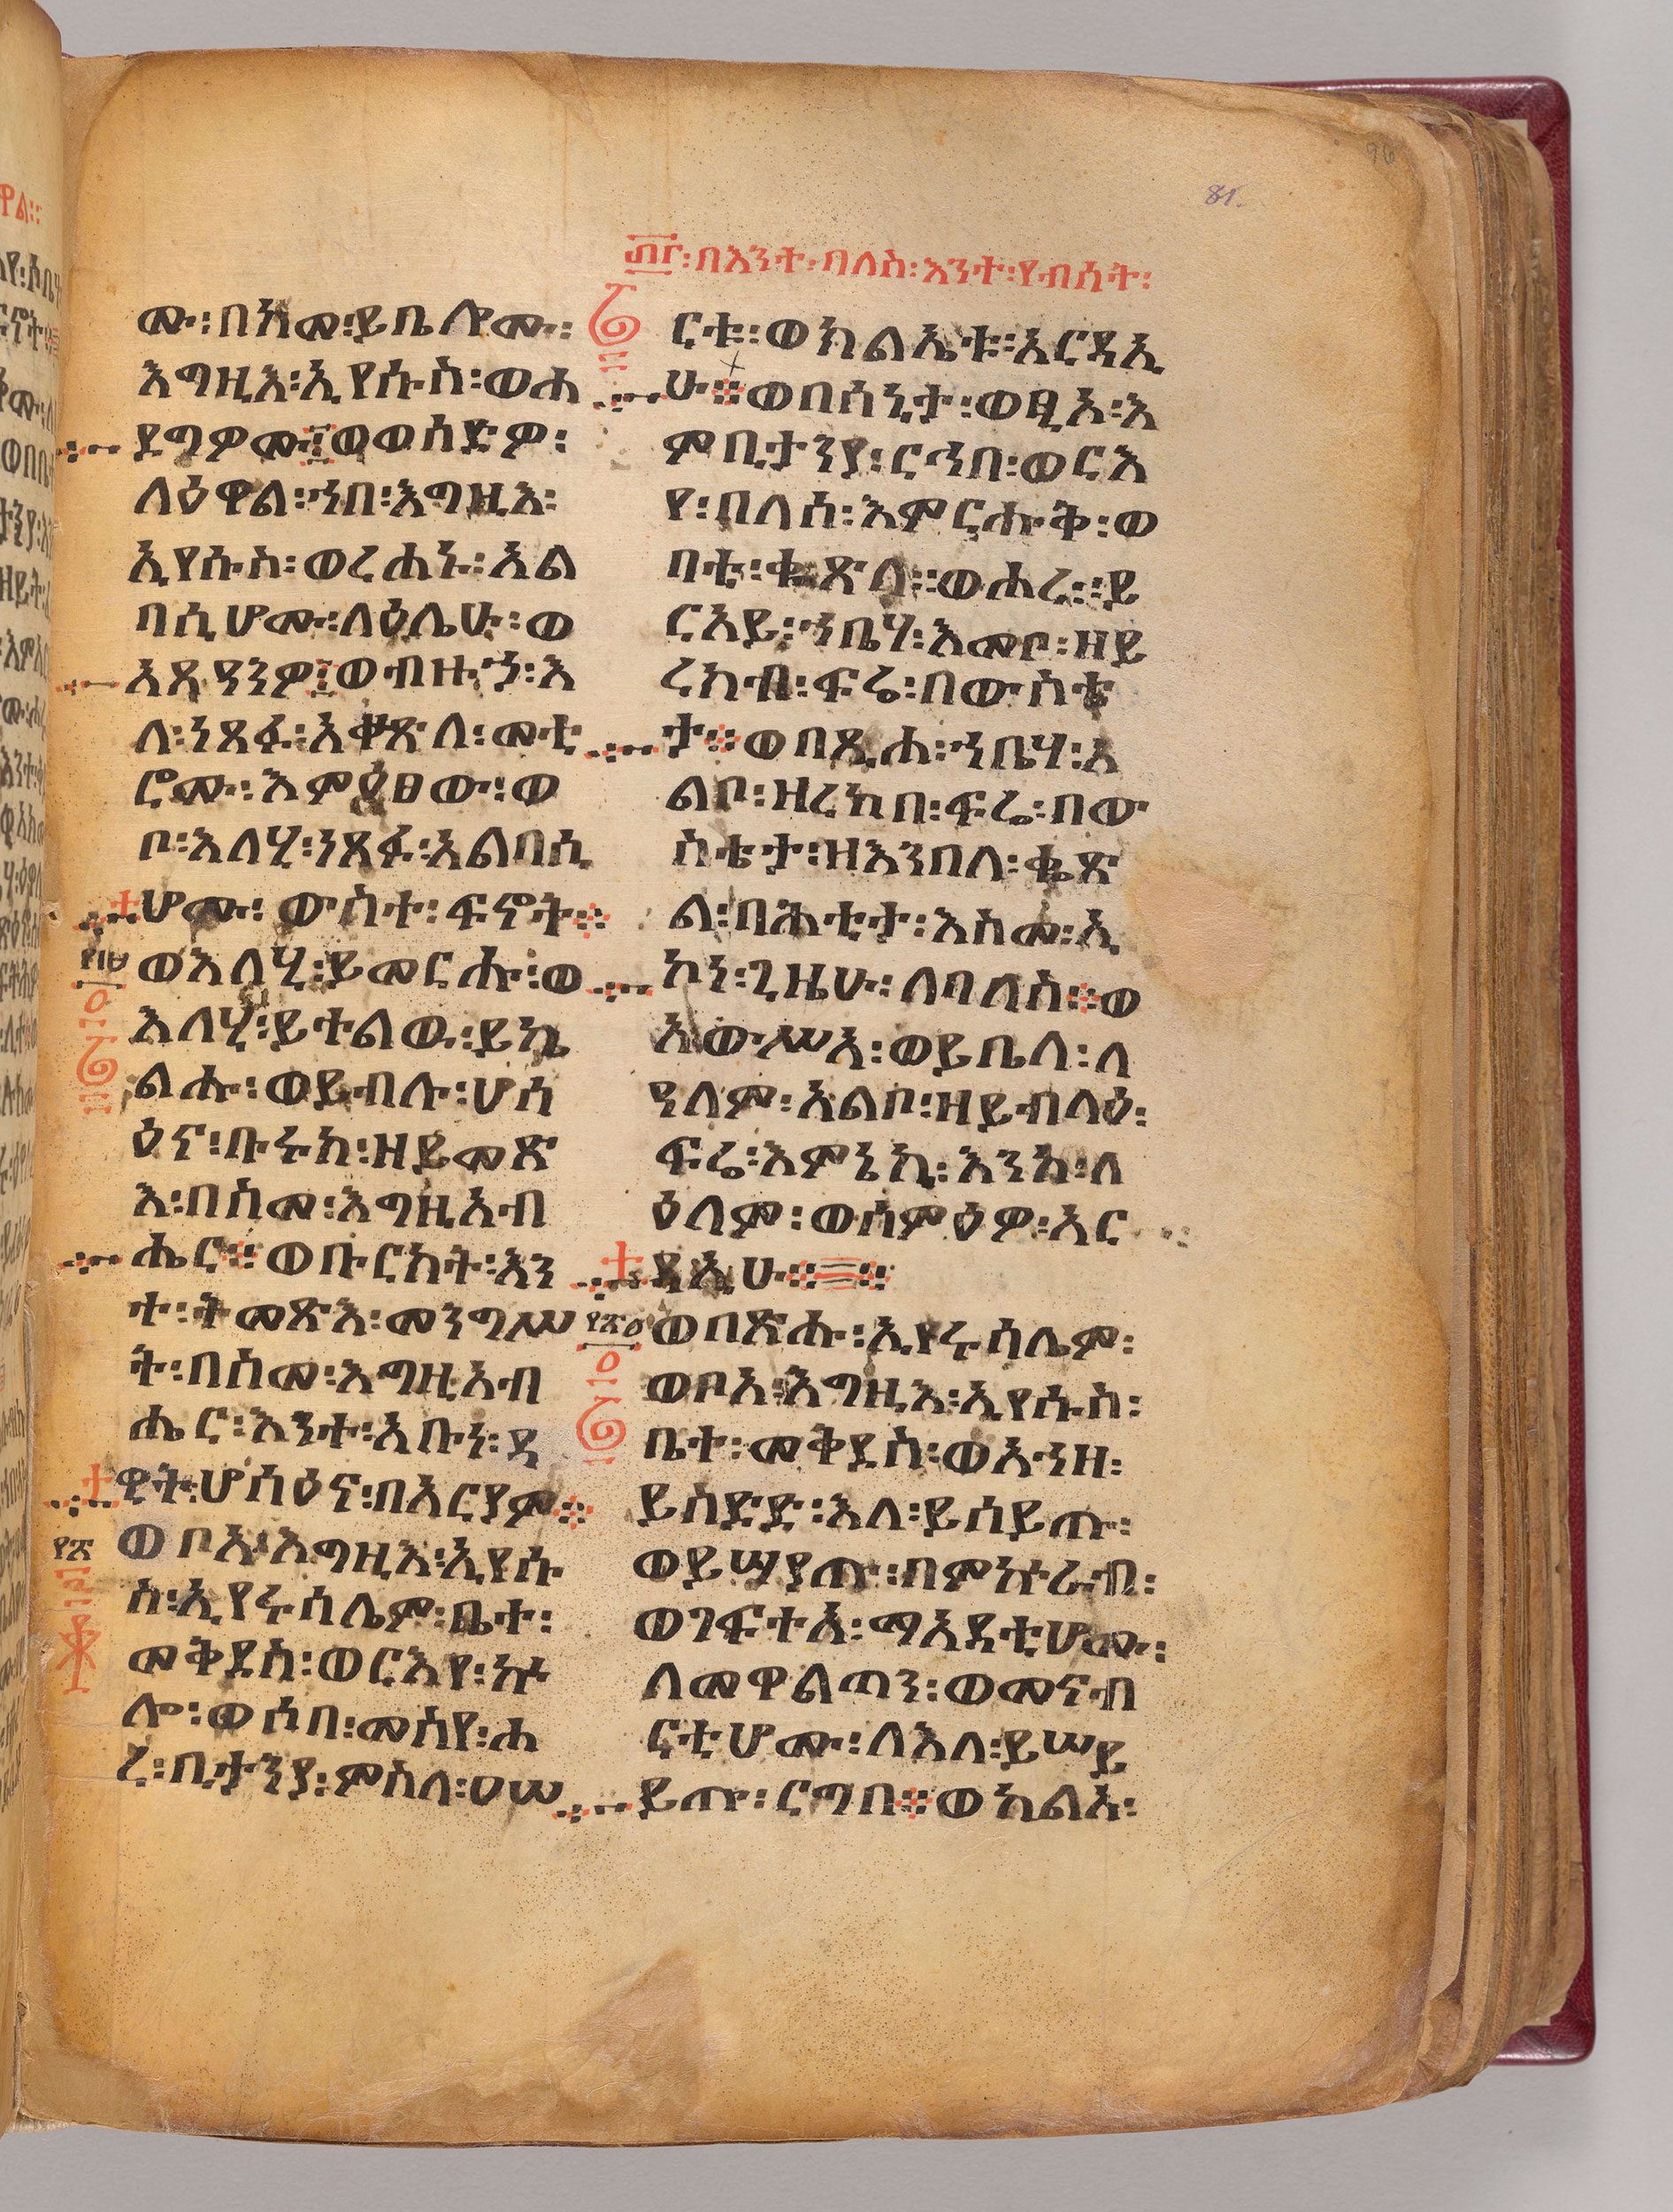 81.
፴፫፡በእንተ፡በለስ፡እንተ፡የብሰት፡
ሙ፡በከመ፡ይቤሎሙ፡
እግዚእ፡ኢየሱስ፡ወሐ
ደግዎሙ፤ወወሰድዎ፡
ለዕዋል፡ኀበ፡እግዚእ፡
ኢየሱስ፡ወረሐኑ፡አል
ባሲሆሙ፡ላዕሌሁ፡ወ
አጻዓንዎ፤ወብዙኃ፡እ
ለ፡ነጸፉ፡አቍጽለ፡መቲ
ሮሙ፡እምዕፀው፡ወ
ቦ፡እለሂ፡ነጸፉ፡አልባሲ
ሆሙ፡ውስተ፡ፍኖት።
ወእለሂ፡ይመርሑ፡ወ
እለሂ፡ይተልዉ፡ይኬ
ልሑ፡ወይብሉ፡ሆሳ
ዕና፡ቡሩክ፡ዘይመጽ
እ፡በስመ፡እግዚአብ
ሔር።ወቡርክት፡እን
ተ፡ትመጽእ፡መንግሥ
ት፡በስመ፡እግዚአብ
ሔር፡እንተ፡አቡነ፡ዳ
ዊት፡ሆሳዕና፡በአርያም።
ወቦአ፡እግዚእ፡ኢየሱ
ስ፡ኢየሩሳሌም፡ቤተ፡
መቅደስ፡ወርእየ፡ኵ
ሎ፡ወሶበ፡መስየ፡ሐ
ረ፡ቢታንያ፡ምስለ፡ዐሠ
ርቱ፡ወክልኤቱ፡አርዳኢ
ሁ።ወበሳኒታ፡ወፂኦ፡እ
ምቢታንያ፡ርኅበ፡ወርእ
የ፡በለሰ፡እምርሑቅ፡ወ
ባቲ፡ቈጽለ፡ወሐረ፡ይ
ርአይ፡ኀቤሃ፡እመቦ፡ዘይ
ረክብ፡ፍሬ፡በውስቴ
ታ።ወበጺሐ፡ኀቤሃ፡አ
ልቦ፡ዘረከበ፡ፍሬ፡በው
ስቴታ፡ዘእንበለ፡ቈጽ
ል፡በሕቲታ፡እስመ፡ኢ
ኮነ፡ጊዜሁ፡ለበለስ።ወ
አውሥአ፡ወይቤላ፡ለ
ዓለም፡አልቦ፡ዘይብላዕ፡
ፍሬ፡እምኔኪ፡እንከ፡ለ
ዕለም፡ወሰምዕዎ፡አር
ዳኢሁ።
ወበጽሑ፡ኢየሩሳሌም፡
ወቦአ፡እግዚእ፡ኢየሱስ፡
ቤተ፡መቅደስ፡ወአኀዘ፡
ይስድድ፡እለ፡ይሰይጡ፡
ወይሣየጡ፡በምኵራብ፡
ወገፍትአ፡ማእዳቲሆሙ፡
ለመዋልጣን፡ወመናብ
ርቲሆሙ፡ለእለ፡ይሠይ
ይጡ፡ርግበ።ወከልአ፡